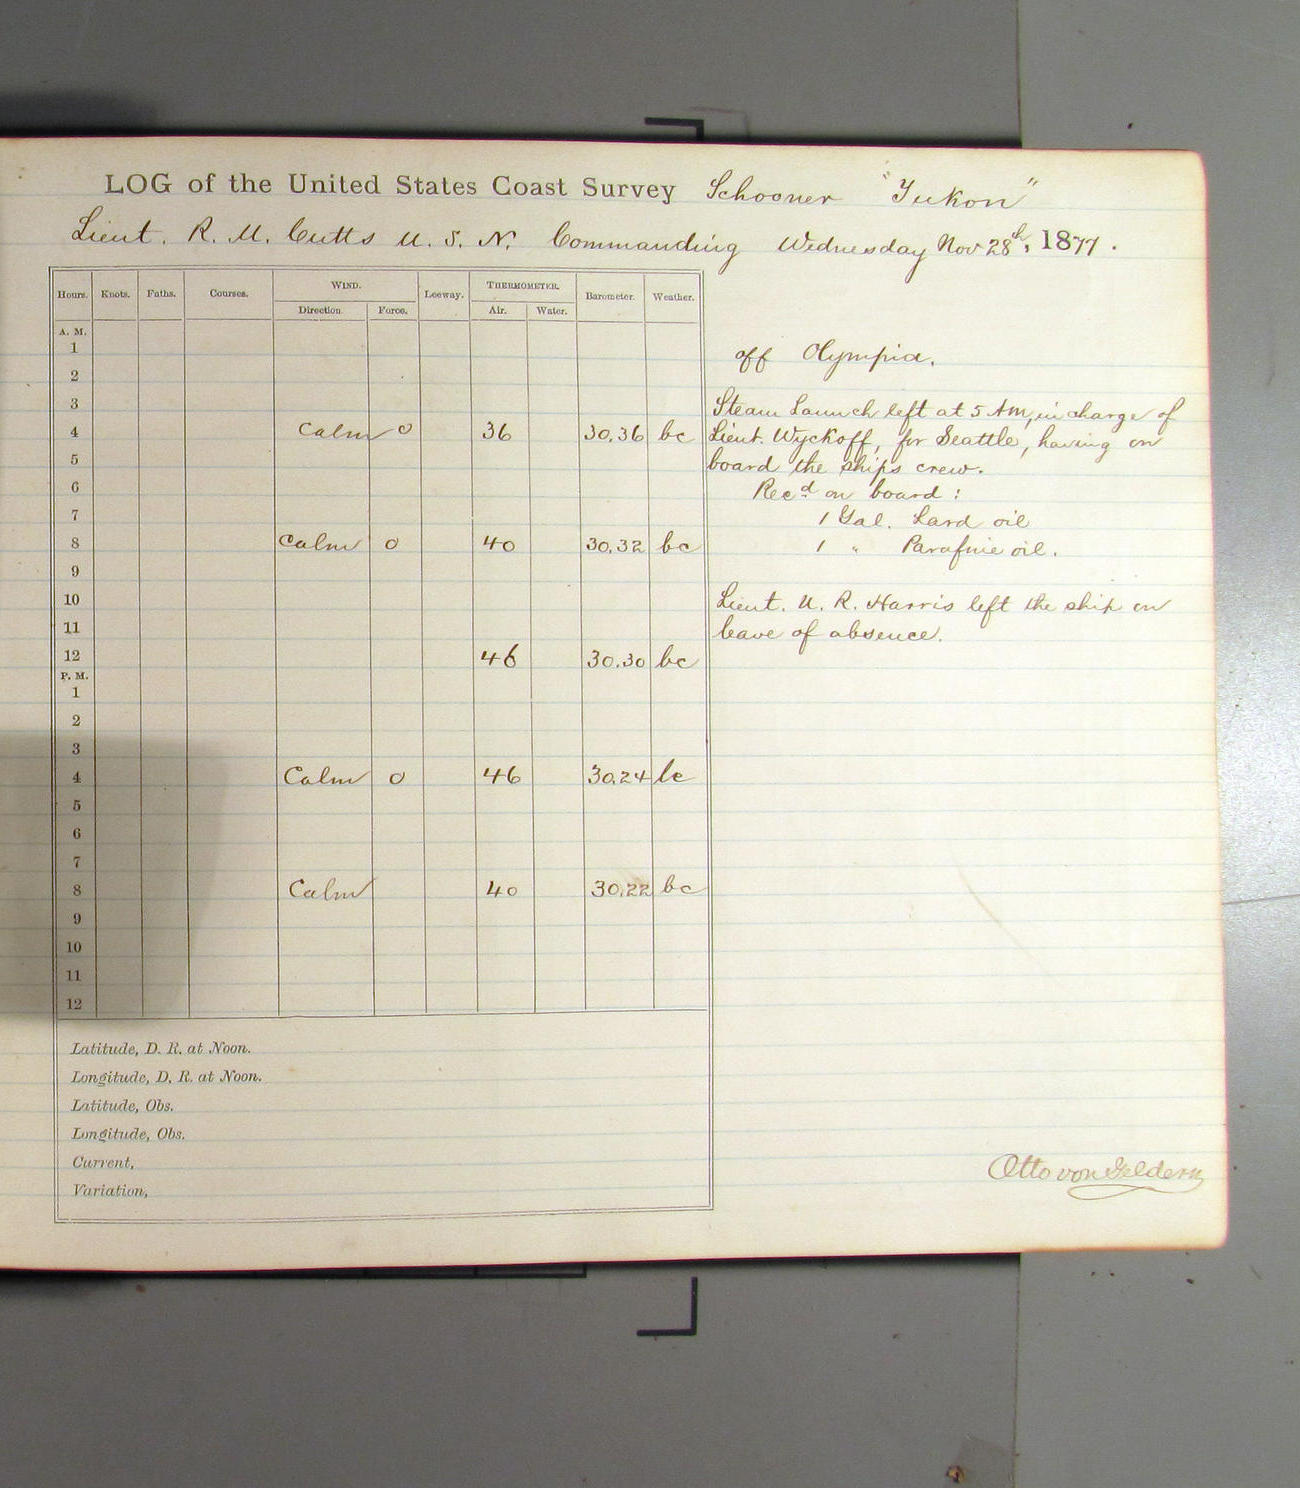 LOG of the United States Coast Survey Schooner "Yukon"
Lieut. R. M. Cutts U. S. N. Commanding Wednesday Nov 28th, 1877.
Hours. Knots. Faths. Courses. WIND. Leeway. THERMOMETER. Barometer. Weather.
Direction. Force. Air. Water.
A. M.
1
off Olympia.
2
3
Steam Launch left at 5 AM, in charge of
4 Calm 0 36 30.36 bc
Lieut. Wyckoff, for Seattle, having on
5
board the ships crew.
6
Recd on board:
7
1 Gal. Lard oil
8 Calm 0 40 30,32 bc
1 " Parafine oil.
9
10
Lieut. U. R. Harris left the ship on
11
leave of absence.
12 46 30.30 bc
P. M.
1
2
3
4 Calm 0 46 30.24 bc
5
6
7
8 Calm 40 30.22 bc
9
10
11
12
Latitude, D. R. at Noon.
Longitude, D. R. at Noon.
Latitude, Obs.
Longitude, Obs.
Current,
Variation,
Otto von Geldern